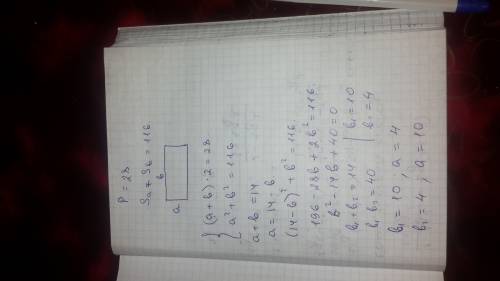 P = 28
Sa + Sb = 116
b
a
{ (a + b) · 2 = 28
a² + b² = 116
a + b = 14
a = 14 - b
(14 - b)² + b² = 116
196 - 28b + 2b² = 116
b² - 14b + 40 = 0
b₁ + b₂ = 14 | b₁ = 10
b₁ b₂ = 40 | b₂ = 4
b₁ = 10 ; a = 4
b₂ = 4 ; a = 10